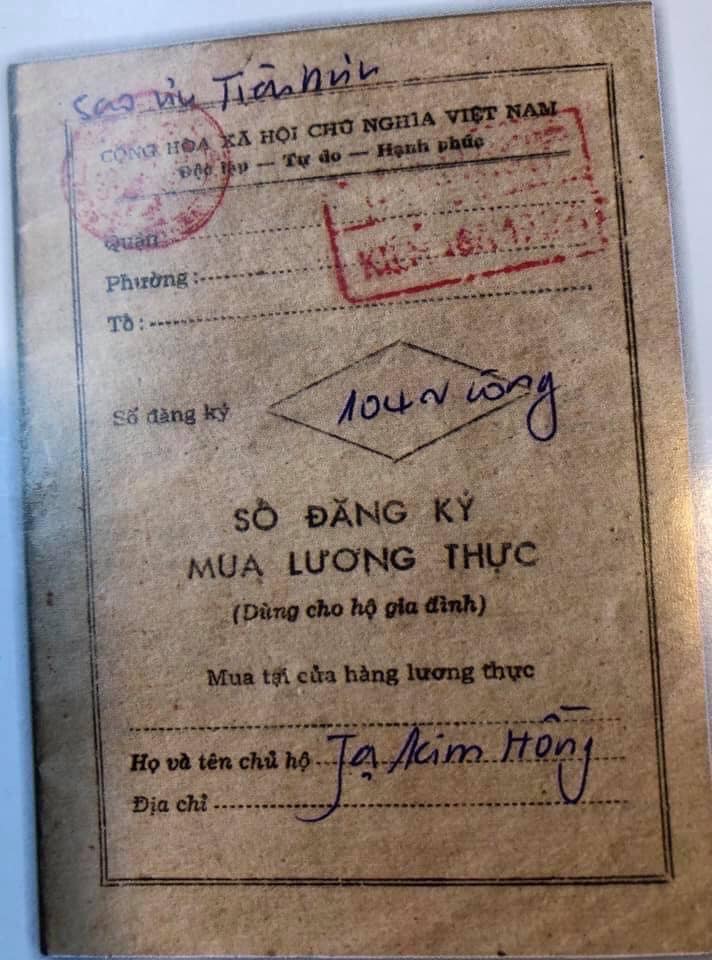 CỘNG HÒA XÃ HỘI CHỦ NGHĨA VIỆT NAM
Độc lập — Tự do — Hạnh phúc
Quận
Phường:
Tổ:
Số đăng ký 104
SỔ ĐĂNG KÝ
MUA LƯƠNG THỰC
(Dùng cho hộ gia đình)
Mua tại cửa hàng lương thực
Họ và tên chủ hộ Tạ Kim Hồng
Địa chỉ